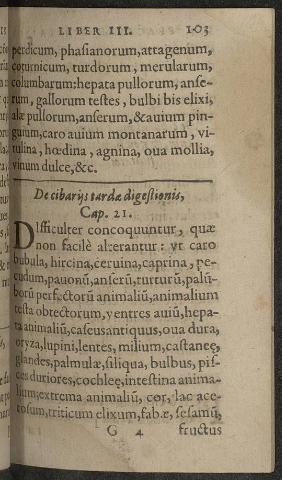 LIBER III. 103
perdicum, phasianorum, attagenum,
coturnicum, turdorum, merularum,
columbarum: hepata pullorum, anse-
rum, gallorum testes, bulbi bis elixi,
alæ pullorum, anserum, & auium pin-
guium, caro auium montanarum, vi-
tulina, hœdina, agnina, oua mollia,
vinum dulce, &c.
De cibarijs tardæ digestionis,
Cap. 21.
DIfficulter concoquuntur, quæ
non facilè alterantur: vt caro
bubula, hircina, ceruina, caprina, pe-
cudum, pauonũ, anserũ, turturũ, palũ-
borũ perfectorũ animaliũ, animalium
testa obtectorum, ventres auiũ, hepa-
ta animaliũ, caseus antiquus, oua dura,
oryza, lupini, lentes, milium, castaneę,
glandes, palmulæ, siliqua, bulbus, pis-
ces duriores, cochleę, intestina anima-
lium, extrema animaliũ, cor, lac ace-
tosum, triticum elixum, fabæ, sesamũ,
G 4 fructus